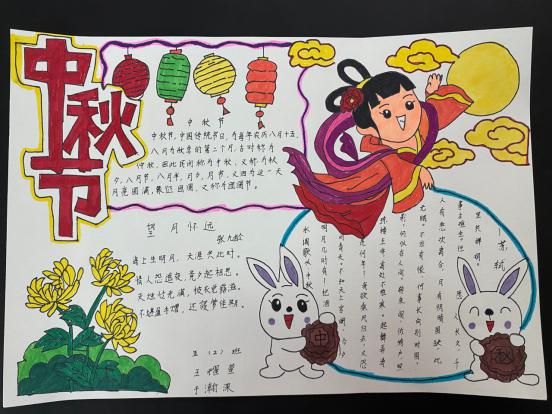 中秋节
中秋节
中秋节,中国传统节日,为每年农历八月十五,
八月为秋季的第二个月,古时称为
仲秋,因此民间称为中秋,又称为秋
夕、八月节、八月半、月夕、月节,又因为这一天
月亮圆满,象征团圆,又称为团圆节。
望月怀远
张九龄
海上生明月,天涯共此时。
情人怨遥夜,竟夕起相思。
灭烛怜光满,披衣觉露滋。
不堪盈手赠,还寝梦佳期。
五(2)班
王
于瀚
水调歌头 中秋
明月几时有?把酒
问青天。不知天上宫阙,今夕
是何年。我欲乘风归去,又恐
琼楼玉宇,高处不胜寒。起舞弄清
影,何似在人间。转朱阁,低绮户,照
无眠。不应有恨,何事长向别时圆?
人有悲欢离合,月有阴晴圆缺,此
事古难全。但愿人长久,千
里共婵娟。
—苏轼
中
秋